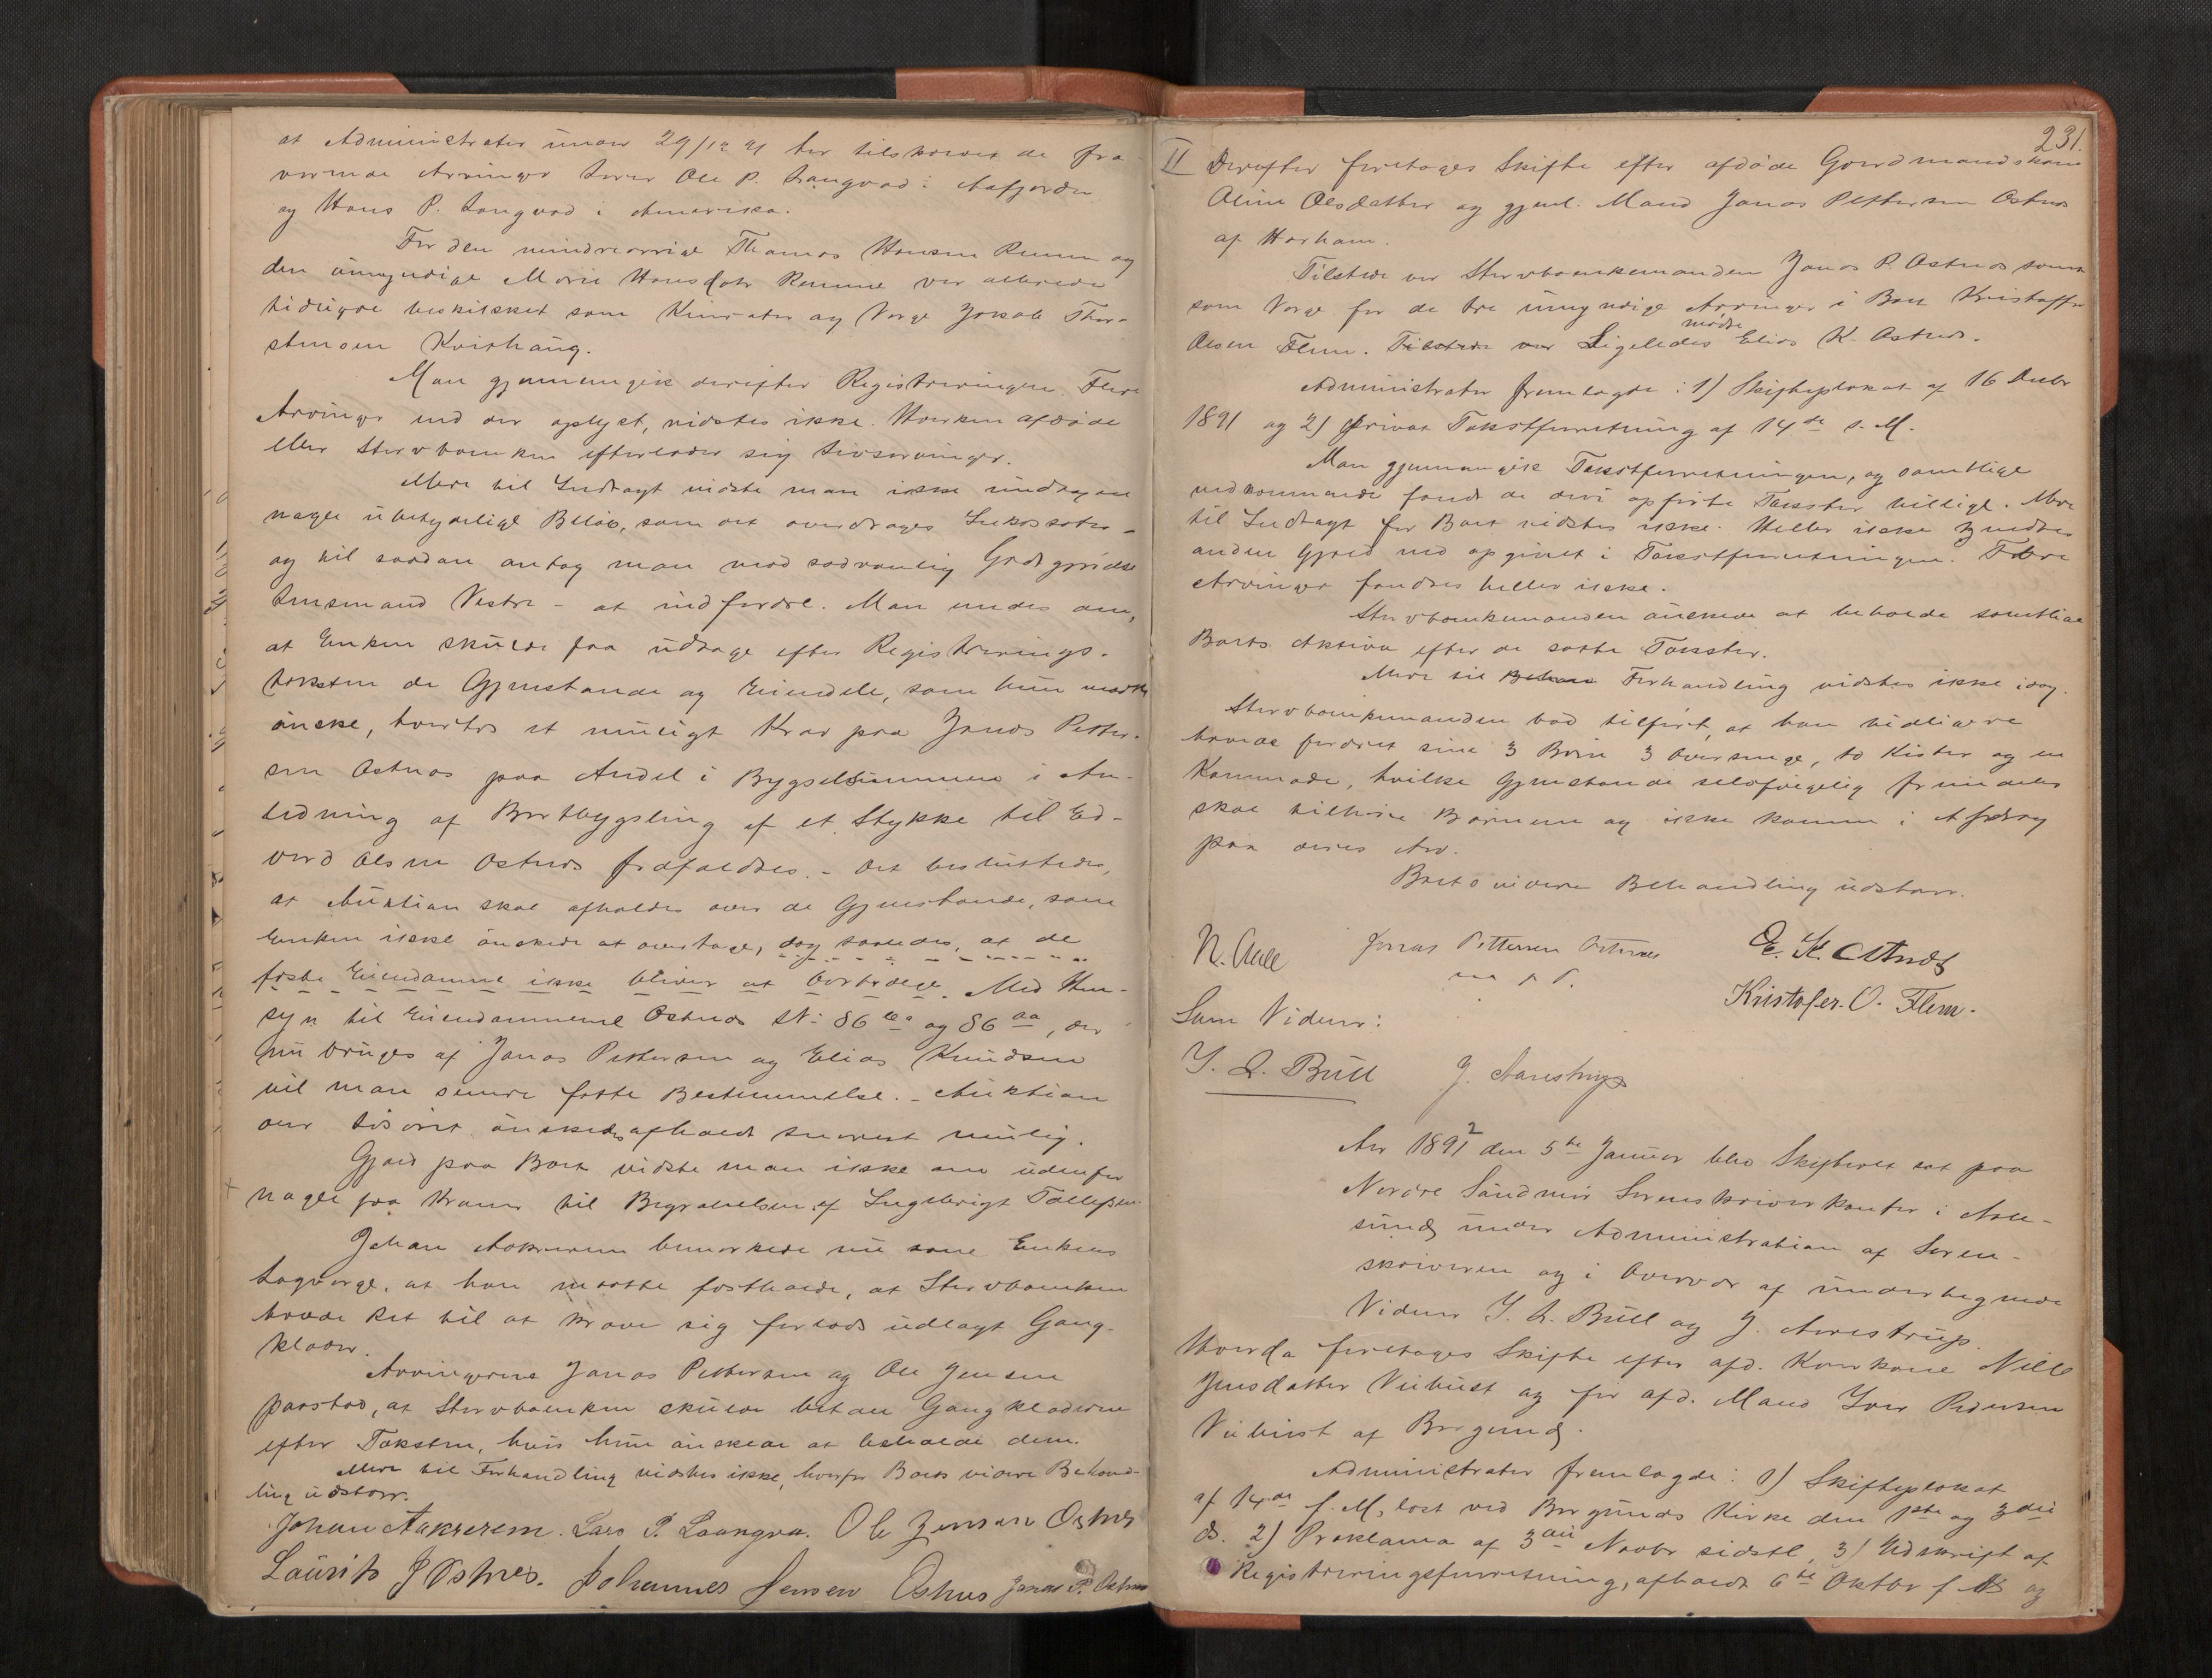 at Administrator under 29/12 91 har tilskrevet de fra-
værende Arvinger Lærer Ole P. Langvad i Aafjorden
og Hans P. Langvad i Amerika.
For den mindreaarige Thomas Hansen Remme og
den umyndige Marie Hansdatr Remme var allerede
tidligere beskikket som Kurator og Værge Jakob Thor-
stensen Kvishaug.
Man gjennemgik derefter Registreringen. Flere
Arvinger end der oplyst, vidstes ikke. Hverken afdøde
eller Stervboenken efterlader sig Livsarvinger.
Mere til Indtægt vidste man ikke undtagen
nogle ubetydelige Beløb, som det overdroges Inkassator
og til saadan antog man mod sædvanlig Godtgjørelse
Lensmand Vestre - at indfordre. Man enedes om,
at Enken skulde faa udtage efter Registrerings-
taksten de Gjenstande og Eiendele, som hun maatte
ønske, hvorhos et muligt Krav paa Jonas Petter-
sen Østnes paa Andel i Bygselsummen i An-
ledning af Bortbygsling af et Stykke til Ed-
vard Olsen Østnes frafaldtes. - Det besluttedes,
at Auktion skal afholdes over de Gjenstande, som
Enken ikke ønskede at overtage, dog saaledes, at de
faste Eiendomme ikke bliver at bortsælge. Med Hen-
syn til Eiendommene Østnes N: 86 og 86 aa, der
nu bruges af Jonas Pettersen og Elias Knudsen
vil man senere fatte Bestemmelse. - Auktion
over Løsøret ønskedes afholdt snarest mulig.
Gjæld paa Boet vidste man ikke om udenfor
nogle fra Kramer til Begravelsen af Ingebrigt Tollefsen.
Johan Aakrerem bemærkede nu som Enkens
Lagværge, at han maatte fastholde, at Stervboenken
havde Ret til at kræve sig forlods udlagt Gang-
klæder.
Arvingerne Jonas Pettersen og Ole Jensen
paastod, at Stervboenken skulde betale Gangklæderne
efter Taksten, hvis hun ønskede at beholde dem.
Mere til Forhandling vidstes ikke, hvorfor Boets videre Behand-
ling udstaar.
Johan Aakrerem. Lars P. Laangva. Ole Jensen Østnes
Laurits J Østnes. Johannes Jensen Østnes Jonas P. Østnes
231.
II Derefter foretoges Skifte efter afdøde Gaardmandskone
Oline Olsdatter og gjenl. Mand Jonas Pettersen Østnes
af Harham.
Tilstede var Stervboenkemanden Jonas P. Østnes samt
som Værge for de tre umyndige Arvinger i Boet Kristoffer
Olsen Flem. Tilstede var Ligeledes mødte Elias K. Østnes.
Administrator fremlagde: 1) Skifteplakat af 16 Decbr
1891 og 2) privat Takstforretning af 14de s. M.
Man gjennemgik Takstforretningen, og samtlige
vedkommende fandt de deri opførte Takster billige. Mere
til Indtægt for Boet vidstes ikke. Heller ikke kjendtes
anden Gjæld end opgivet i Takstforretningen. Flere
Arvinger fandtes heller ikke.
Stervboenkemanden ønskede at beholde samtlige
Boets Aktiva efter de satte Takster.
Mere til Behan Forhandling vidstes ikke idag.
Stervboenkemanden bad tilført, at han tidligere
havde foræret sine 3 Børn 3 Oversenge, to Kister og en
Kommode, hvilke Gjenstande selvfølgelig fremdeles
skal tilhøre Børnene og ikke komme i Afdrag
paa deres Arv.
Boets videre Behandling udstaar.
N. Aall Jonas Pettersen Østnes E. K. Østnes
m p P. Kristofer. O. Flem.
Som Vidner:
J. L. Bull J. Aarestrup
Aar 18912 den 5te Januar blev Skifteret sat paa
Nordre Søndmør Sorenskriverkontor i Aale-
sund under Administration af Soren-
skriveren og i Overvær af undertegnede
Vidner J. L. Bull og J. Aarestrup.
Hvorda foretoges Skifte efter afd. Kaarkone Nille
Jensdatter Veibust og før afd. Mand Iver Pedersen
Veibust af Borgund.
Administrator fremlagde: 1) Skifteplakat
af 14de f. M, læst ved Borgunds Kirke den 1ste og 3die
ds. 2) Proklama af 3die Novbr sidstl, 3) Udskrift af
Registreringsforretning, afholdt 6te Oktbr f. A og